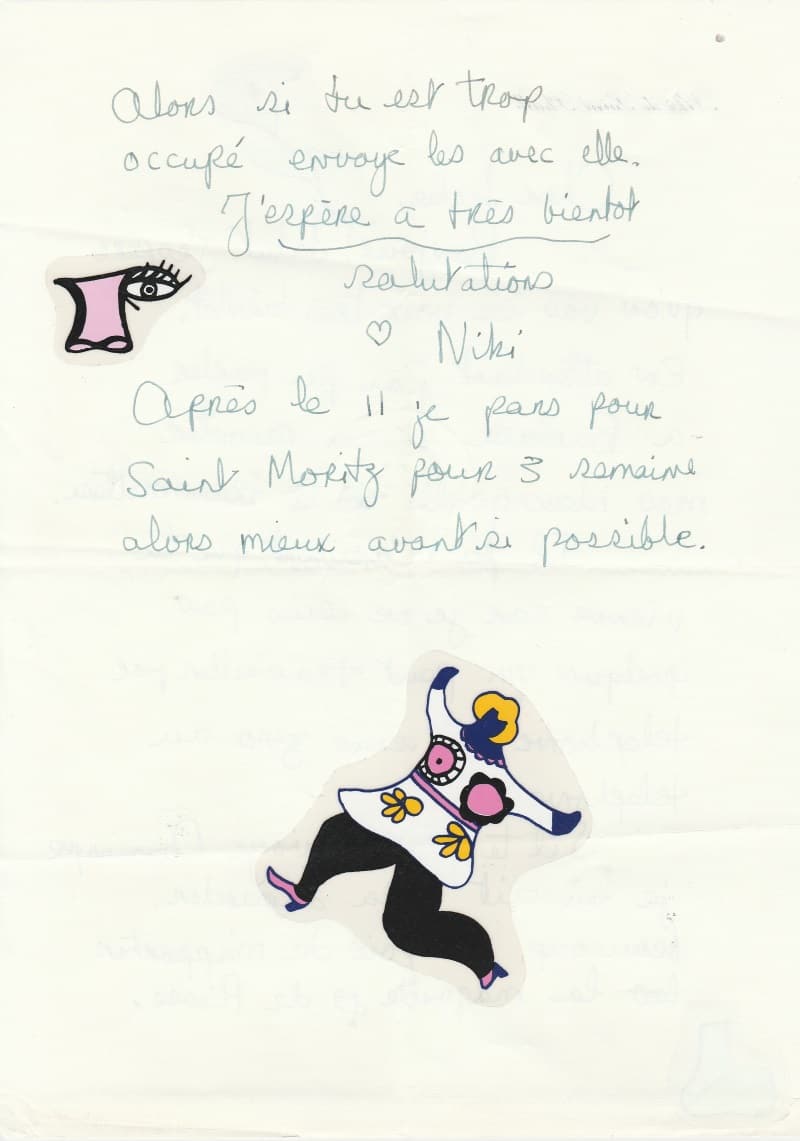 Alors si tu est trop
occupé envoye les avec elle.
J'espère a très bientot
salutations
♡ Niki
Après le 11 je pars pour
Saint Moritz pour 3 semaine
alors mieux avant si possible.